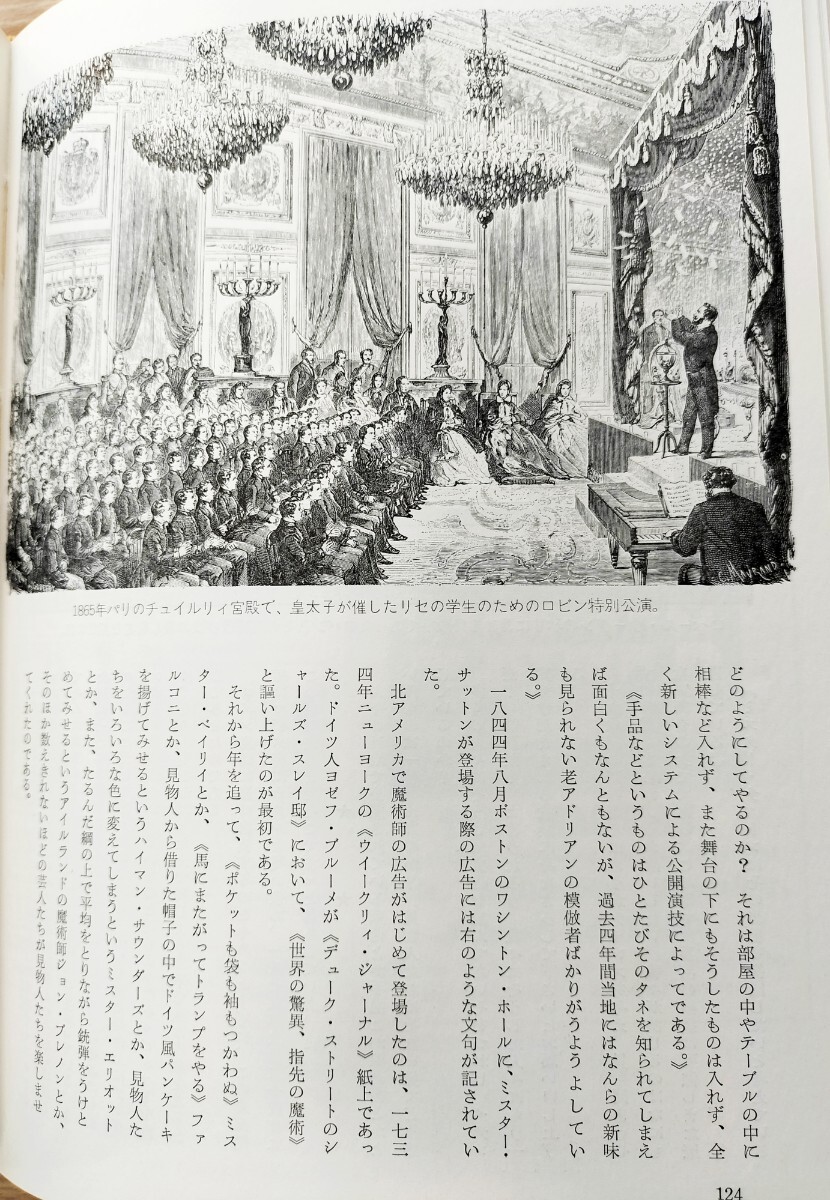 1865年パリのチュイルリィ宮殿で、皇太子が催したリセの学生のためのロビン特別公演。
どのようにしてやるのか？　それは部屋の中やテーブルの中に
相棒など入れず、また舞台の下にもそうしたものは入れず、全
く新しいシステムによる公開演技によってである。》
《手品などというものはひとたびそのタネを知られてしまえ
ば面白くもなんともないが、過去四年間当地にはなんらの新味
も見られない老アドリアンの模倣者ばかりがうようよしてい
る。》
一八四四年八月ボストンのワシントン・ホールに、ミスター・
サットンが登場する際の広告には右のような文句が記されてい
た。
北アメリカで魔術師の広告がはじめて登場したのは、一七三
四年ニューヨークの《ウイークリィ・ジャーナル》紙上であっ
た。ドイツ人ヨゼフ・ブルーメが《デューク・ストリートのシ
ャールズ・スレイ邸》において、《世界の驚異、指先の魔術》
と謳い上げたのが最初である。
それから年を追って、《ポケットも袋も袖もつかわぬ》ミス
ター・ベイリイとか、《馬にまたがってトランプをやる》ファ
ルコニとか、見物人から借りた帽子の中でドイツ風パンケーキ
を揚げてみせるというハイマン・サウンダーズとか、見物人た
ちをいろいろな色に変えてしまうというミスター・エリオット
とか、また、たるんだ綱の上で平均をとりながら銃弾をうけと
めてみせるというアイルランドの魔術師ジョン・ブレノンとか、
そのほか数えきれないほどの芸人たちが見物人たちを楽しませ
てくれたのである。
124